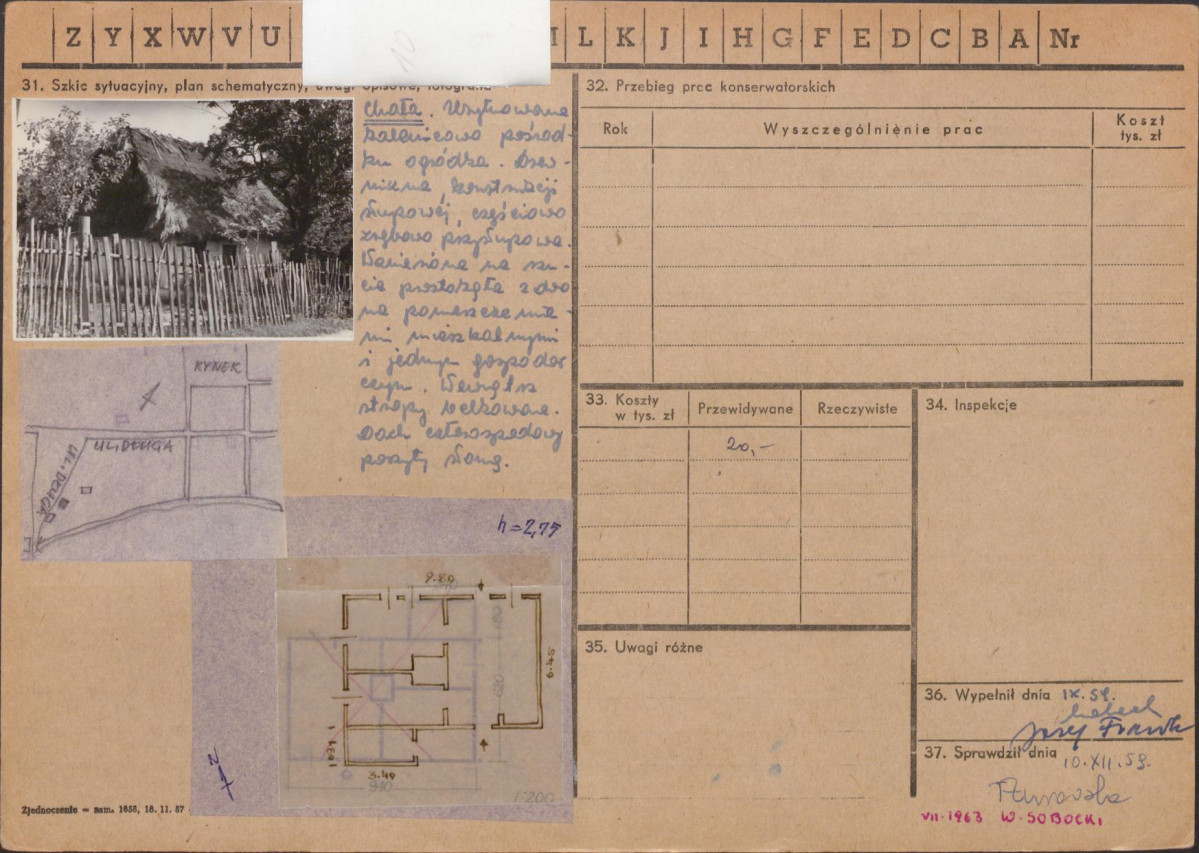 Z Y X W V U L K J I H G F E D C B A Nr
10
31. Szkic sytuacyjny, plan schematyczny, uwagi opisowe, fotografia
Chata. Użytkowana
pośrod-
ku ogródka. Drew-
niana, konstrukcji
słupowej, częściowo
zrębowo przysłupowa.
Wzniesiona na rzu-
cie prostokąta z dwo
ma pomieszczenia-
mi mieszkalnymi
i jednym gospodar
czym. Wewnątrz
stropy belkowane.
Dach czterospadowy
poszyty słomą.
RYNEK
UL. DŁUGA
UL. DŁUGA
h = 2,75
9.80
5.49
3.40
910
1:200
Zjednoczenie — zam. 1658, 18. 11. 57
32. Przebieg prac konserwatorskich
Rok
Wyszczególnienie prac
Koszt
tys. zł
33. Koszty
w tys. zł
Przewidywane
Rzeczywiste
20,-
34. Inspekcje
35. Uwagi różne
36. Wypełnił dnia IX. 59.
Józef Frank
37. Sprawdził dnia
10. XII. 59.
VII. 1963 W. SOBOCKI